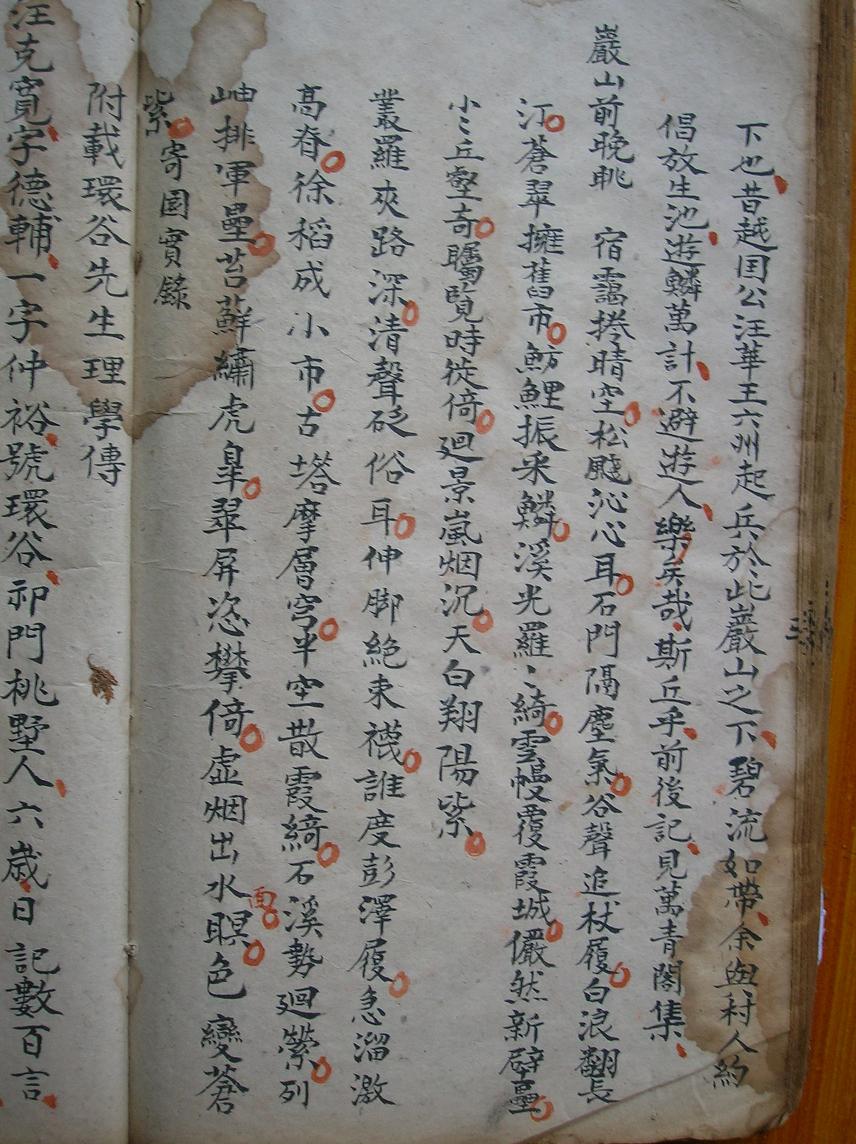 下也昔越国公汪華王六州起兵於此巖山之下碧流如帶余與村人約
倡放生池遊鱗萬計不避遊人樂矣哉斯丘乎前後記見萬青閣集
巖山前晚眺　宿靄捲晴空松颸沁心耳石門隔塵氣谷聲追杖履白浪翻長
汀蒼翠擁舊市魴鯉振采鱗溪光羅〻綺雲幔覆霞城儼然新辟壘
小〻丘壑奇矚覽時徙倚廻景嵐烟沉天白翔陽紫
叢羅夾路深清聲砭俗耳伸脚絶束襪誰度彭澤履急溜激
高舂徐稻成小市古塔摩層穹半空散霞綺石溪勢廻縈列
岫排軍壘苔蘚繡虎皐翠屏恣攀倚虛烟出水面暝色變蒼
紫　寄園實錄
附載環谷先生理學傳
汪克寬字德輔一字仲裕號環谷祁門桃墅人六歲日記數百言